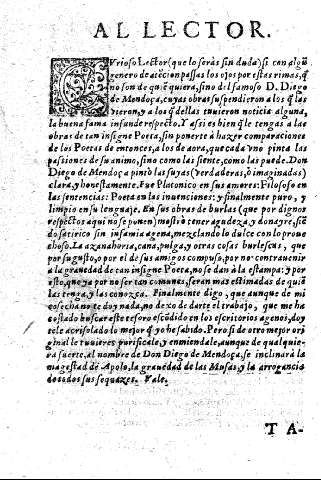 AL LECTOR.
CVrioso Lector (que lo seràs sin duda) si con algũ
genero de aficion passas los ojos por estas rimas, q̃
no son de quiẽ quiera, sino del famoso D. Diego
de Mendoça, cuyas obras suspendieron a los q̃ las
vieron, y a los q̃ dellas tuuieron noticia alguna,
la buena fama infunde respecto. Y assi es bien q̃ le tengas a las
obras de tan insigne Poeta, sin ponerte à hazer comparaciones
de los Poetas de entonces, a los de aora, que cada vno pinta las
passiones de su animo, sino como las siente, como las puede. Don
Diego de Mendoça pintò las suyas (verdaderas, ò imaginadas)
clara, y honestamente. Fue Platonico en sus amores: Filosofo en
las sentencias: Poeta en las inuenciones: y finalmente puro, y
limpio en su lenguaje. En sus obras de burlas (que por dignos
respectos aqui no se ponen) mostrò tener agudeza, y donayre, siẽ
do satirico sin infamia agena, mezclando lo dulce con lo proue
choso. La azanahoria, cana, pulga, y otras cosas burlescas, que
por su gusto, o por el de sus amigos compuso, por no contrauenir
a la grauedad de tan insigne Poeta, no se dan à la estampa: y por
esto, que ya por no ser tan comunes, seran mas estimadas de quiẽ
las tenga, y las conozca. Finalmente digo, que aunque de mi
cosecha no te doy nada, no dexo de darte el trabajo, que me ha
costado buscar este tesoro escõdido en los escritorios agenos, doy
tele acrisolado lo mejor q̃ yo he sabido. Pero si de otro mejor ori
ginal le tuuieres purificale, y enmiendale, aunque de qualquie-
ra suerte, al nombre de Don Diego de Mendoça, se inclinarà la
magestad de Apolo, la grauedad de las Musas, y la arrogancia
de todos sus sequazes. Vale.
T A-